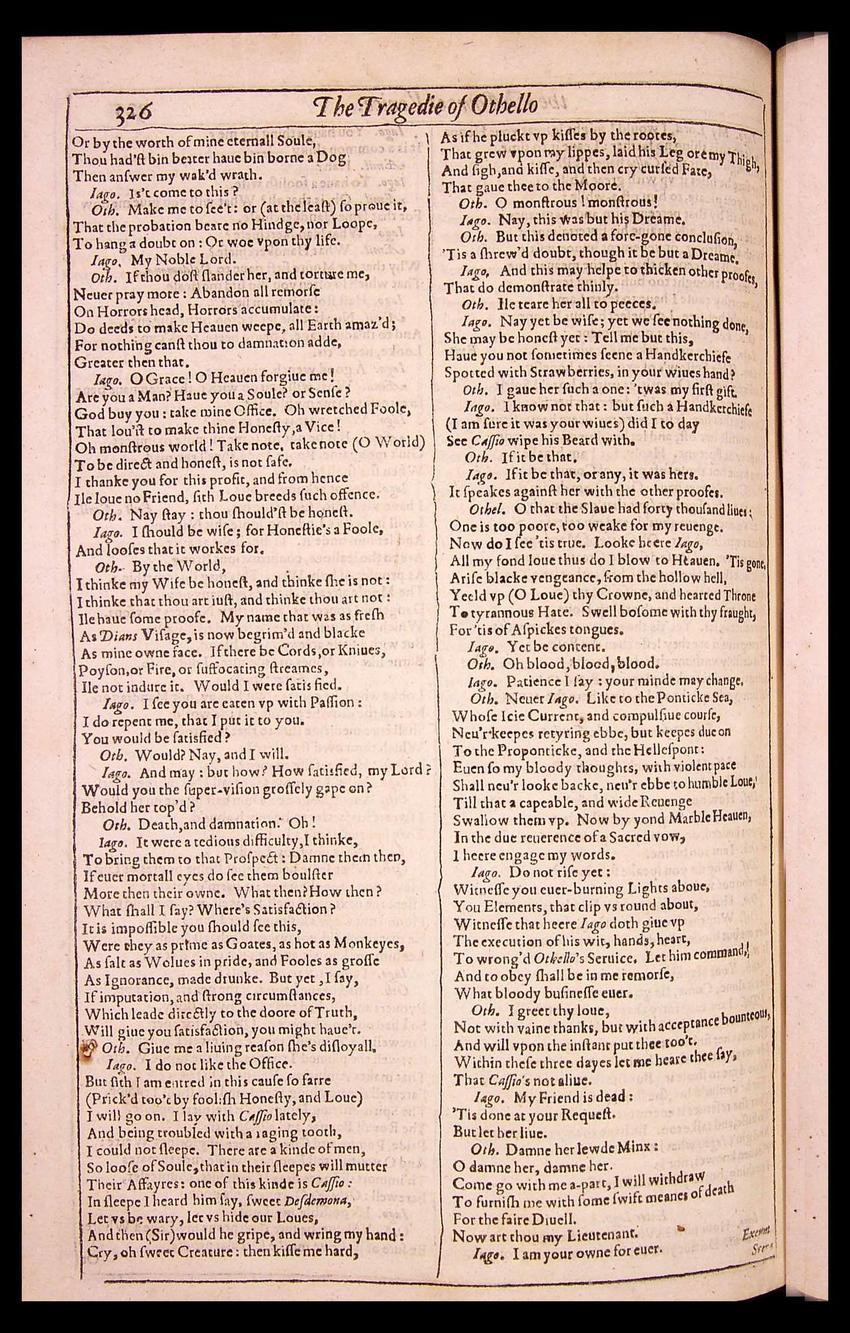 326
The Tragedie of Othello
Or by the worth of mine eternall Soule,
Thou had'ſt bin better haue bin borne a Dog
Then anſwer my wak'd wrath.
Iago. Is't come to this?
Oth. Make me to ſee't: or (at the leaſt) ſo proue it,
That the probation beare no Hindge, nor Loope,
To hang a doubt on: Or woe vpon thy life.
Iago. My Noble Lord.
Oth. If thou doſt ſlander her, and torture me,
Neuer pray more: Abandon all remorſe
On Horrors head, Horrors accumulate:
Do deeds to make Heauen weepe, all Earth amaz'd;
For nothing canſt thou to damnation adde,
Greater then that.
Iago. O Grace! O Heauen forgiue me!
Are you a Man? Haue you a Soule? or Senſe?
God buy you: take mine Office. Oh wretched Foole,
That lou'ſt to make thine Honeſty, a Vice!
Oh monſtrous world! Take note, take note (O World)
To be direct and honeſt, is not ſafe.
I thanke you for this profit, and from hence
Ile loue no Friend, ſith Loue breeds ſuch offence.
Oth. Nay ſtay: thou ſhould'ſt be honeſt.
Iago. I ſhould be wiſe; for Honeſtie's a Foole,
And looſes that it workes for.
Oth. By the World,
I thinke my Wife be honeſt, and thinke ſhe is not:
I thinke that thou art iuſt, and thinke thou art not:
Ile haue ſome proofe. My name that was as freſh
As Dians Viſage, is now begrim'd and blacke
As mine owne face. If there be Cords, or Kniues,
Poyſon, or Fire, or ſuffocating ſtreames,
Ile not indure it. Would I were ſatisfied.
Iago. I ſee you are eaten vp with Paſſion:
I do repent me, that I put it to you.
You would be ſatisfied?
Oth. Would? Nay, and I will.
Iago. And may: but how? How ſatisfied, my Lord?
Would you the ſuper-viſion groſſely gape on?
Behold her top'd?
Oth. Death, and damnation. Oh!
Iago. It were a tedious difficulty, I thinke,
To bring them to that Proſpect: Damne them then,
If euer mortall eyes do ſee them boulſter
More then their owne. What then? How then?
What ſhall I ſay? Where's Satisfaction?
It is impoſſible you ſhould ſee this,
Were they as prime as Goates, as hot as Monkeyes,
As ſalt as Wolues in pride, and Fooles as groſſe
As Ignorance, made drunke. But yet, I ſay,
If imputation, and ſtrong circumſtances,
Which leade directly to the doore of Truth,
Will giue you ſatisfaction, you might haue't.
Oth. Giue me a liuing reaſon ſhe's diſloyall.
Iago. I do not like the Office.
But ſith I am entred in this cauſe ſo farre
(Prick'd too't by fooliſh Honeſty, and Loue)
I will go on. I lay with Caſſio lately,
And being troubled with a raging tooth,
I could not ſleepe. There are a kinde of men,
So looſe of Soule, that in their ſleepes will mutter
Their Affayres: one of this kinde is Caſſio:
In ſleepe I heard him ſay, ſweet Deſdemona,
Let vs be wary, let vs hide our Loues,
And then (Sir) would he gripe, and wring my hand:
Cry, oh ſweet Creature: then kiſſe me hard,
As if he pluckt vp kiſſes by the rootes,
That grew vpon my lippes, laid his Leg ore my Thigh,
And ſigh, and kiſſe, and then cry curſed Fate,
That gaue thee to the Moore.
Oth. O monſtrous! monſtrous!
Iago. Nay, this was but his Dreame.
Oth. But this denoted a fore-gone concluſion,
'Tis a ſhrew'd doubt, though it be but a Dreame.
Iago, And this may helpe to thicken other proofes,
That do demonſtrate thinly.
Oth. Ile teare her all to peeces.
Iago. Nay yet be wiſe; yet we ſee nothing done,
She may be honeſt yet: Tell me but this,
Haue you not ſometimes ſeene a Handkerchiefe
Spotted with Strawberries, in your wiues hand?
Oth. I gaue her ſuch a one: 'twas my firſt gift.
Iago. I know not that: but ſuch a Handkerchiefe
(I am ſure it was your wiues) did I to day
See Caſſio wipe his Beard with.
Oth. If it be that.
Iago. If it be that, or any, it was hers.
It ſpeakes againſt her with the other proofes.
Othel. O that the Slaue had forty thouſand liues:
One is too poore, too weake for my reuenge.
Now do I ſee 'tis true. Looke heere Iago,
All my fond loue thus do I blow to Heauen. 'Tis gone,
Ariſe blacke vengeance, from the hollow hell,
Yeeld vp (O Loue) thy Crowne, and hearted Throne
To tyrannous Hate. Swell boſome with thy fraught,
For 'tis of Aſpickes tongues.
Iago. Yet be content.
Oth. Oh blood, blood, blood.
Iago. Patience I ſay: your minde may change.
Oth. Neuer Iago. Like to the Ponticke Sea,
Whoſe Icie Current, and compulſiue courſe,
Neu'r keepes retyring ebbe, but keepes due on
To the Proponticke, and the Helleſpont:
Euen ſo my bloody thoughts, with violent pace
Shall neu'r looke backe, neu'r ebbe to humble Loue,
Till that a capeable, and wide Reuenge
Swallow them vp. Now by yond Marble Heauen,
In the due reuerence of a Sacred vow,
I heere engage my words.
Iago. Do not riſe yet:
Witneſſe you euer-burning Lights aboue,
You Elements, that clip vs round about,
Witneſſe that heere Iago doth giue vp
The execution of his wit, hands, heart,
To wrong'd Othello's Seruice. Let him command,
And to obey ſhall be in me remorſe,
What bloody buſineſſe euer.
Oth. I greet thy loue,
Not with vaine thanks, but with acceptance bounteous,
And will vpon the inſtant put thee too't.
Within theſe three dayes let me heare thee ſay,
That Caſſio's not aliue.
Iago. My Friend is dead:
'Tis done at your Requeſt.
But let her liue.
Oth. Damne her lewde Minx:
O damne her, damne her.
Come go with me a-part, I will withdraw
To furniſh me with ſome ſwift meanes of death
For the faire Diuell.
Now art thou my Lieutenant.
Iago. I am your owne for euer.
Exeunt